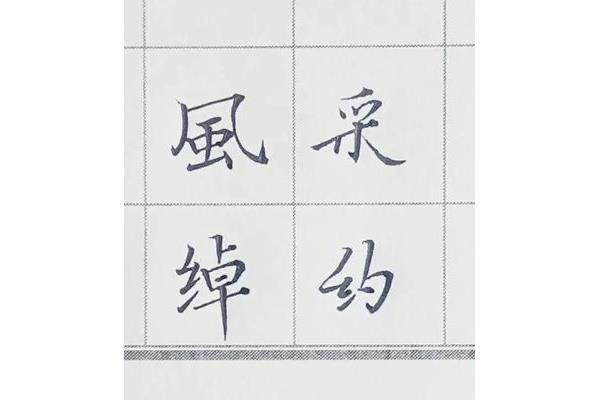 風采
绰约